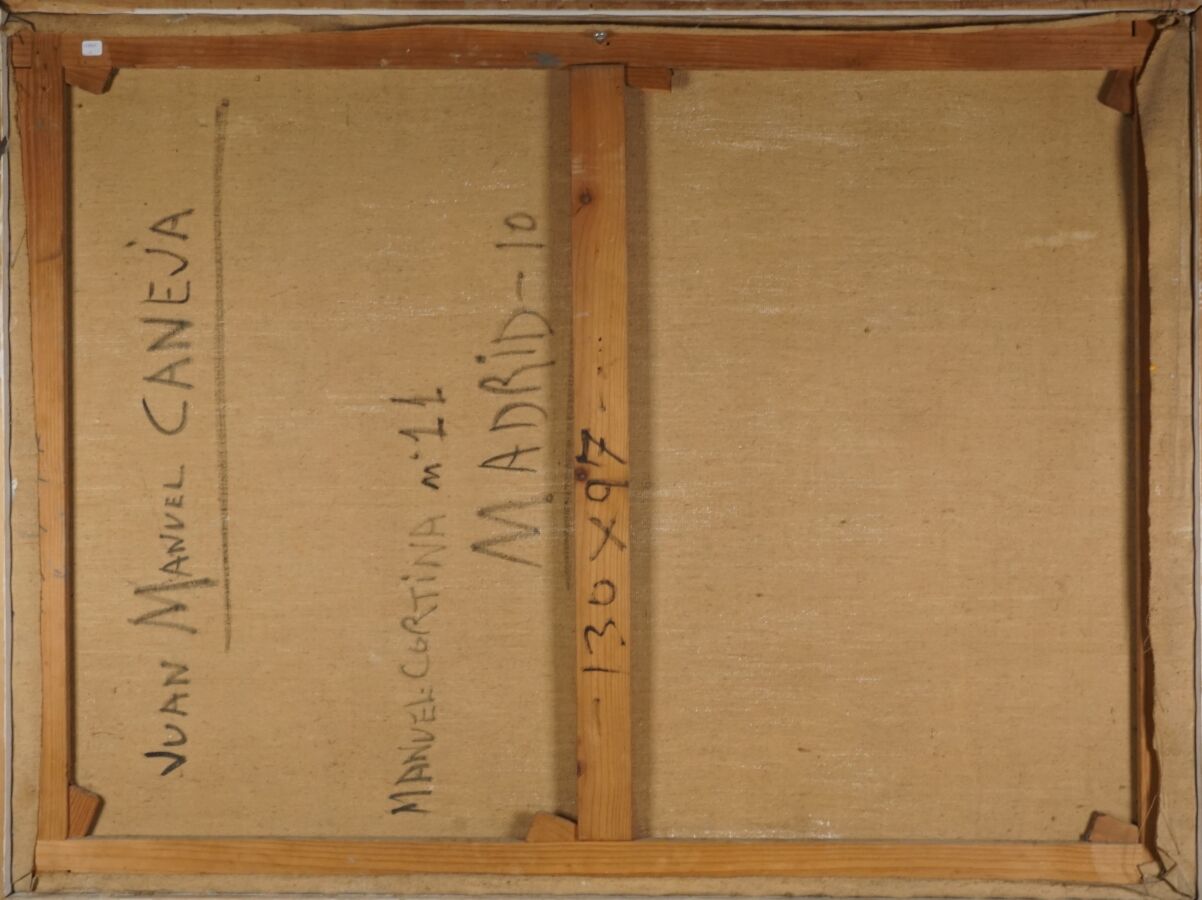 JUAN MANUEL CANEJA
MANUEL CORTINA nº 11
MADRID - 10
- 130 X 97 -